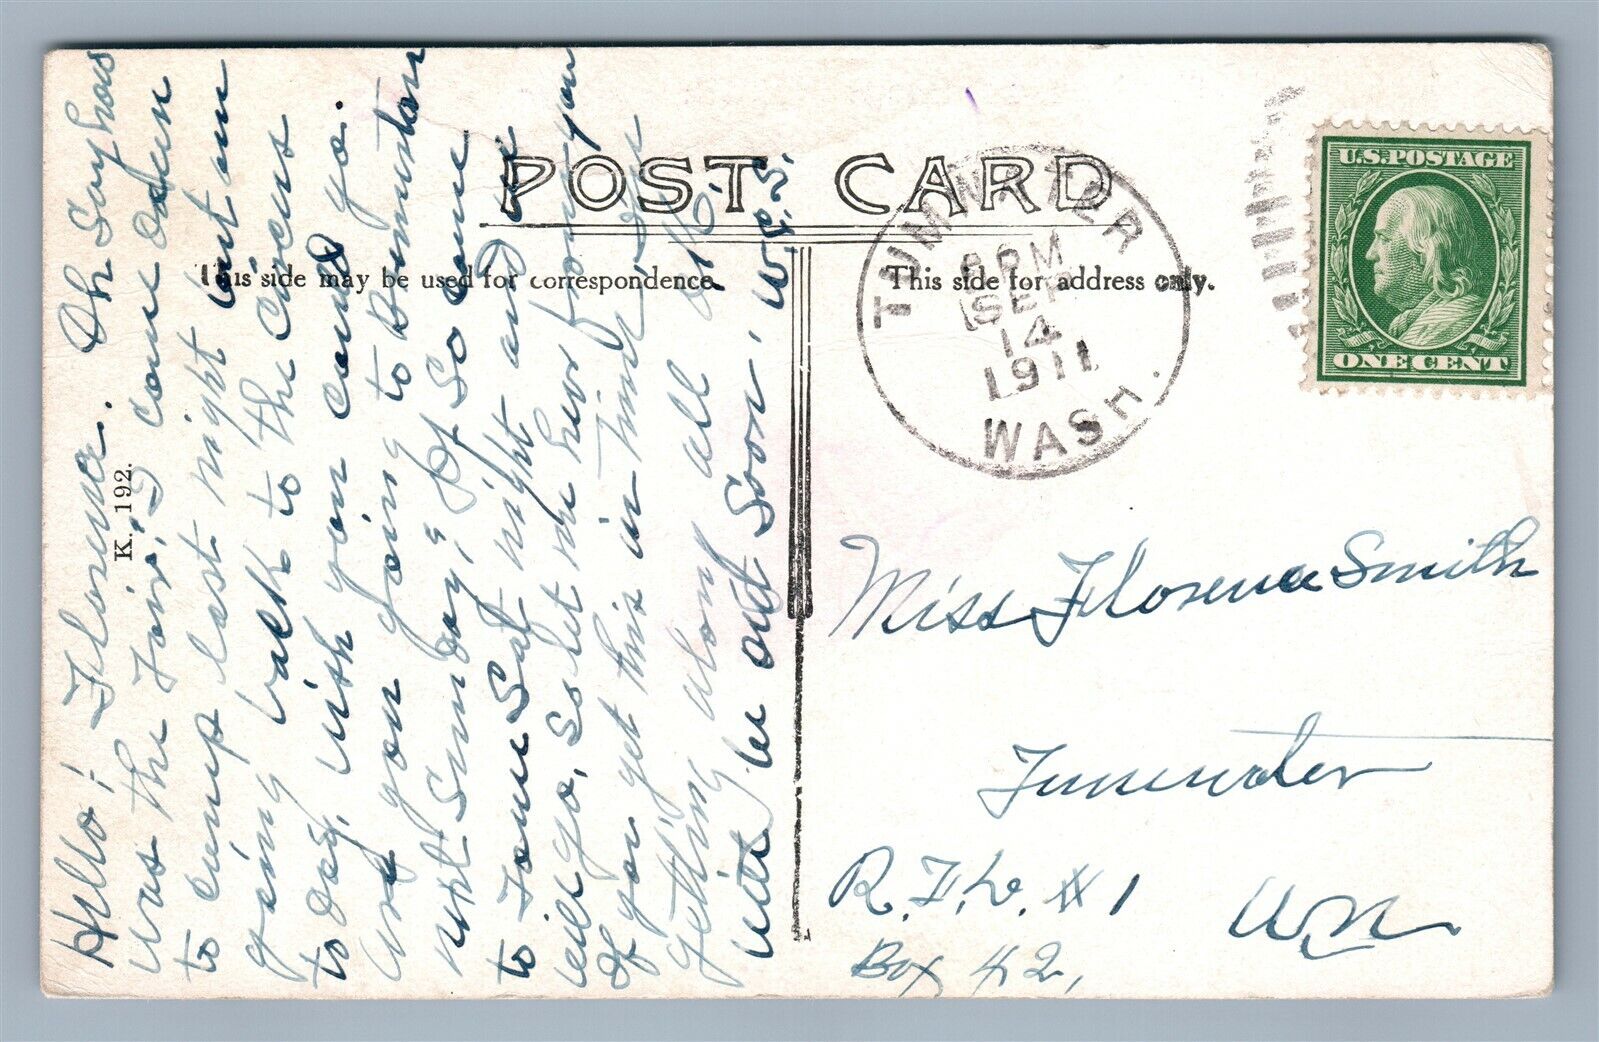 POST CARD
This side may be used for correspondence
This side for address only.
K. 192.
TUMWATER
PM
SEP
14
1911
WASH.
U.S. POSTAGE
ONE CENT
Hello! Florence. Oh Say how
was the Fair, I came down
to camp last night but am
going back to the Circus
to day, wish you could go.
are you going to
next Sunday? If So come
to Town Sat night and we
will go. So let me hear from you
if you get this in time. Am
getting along all o.k.
will be out soon. W.S.
Miss Florence Smith
Tumwater
R.F.D. #1 Wn.
Box 42,